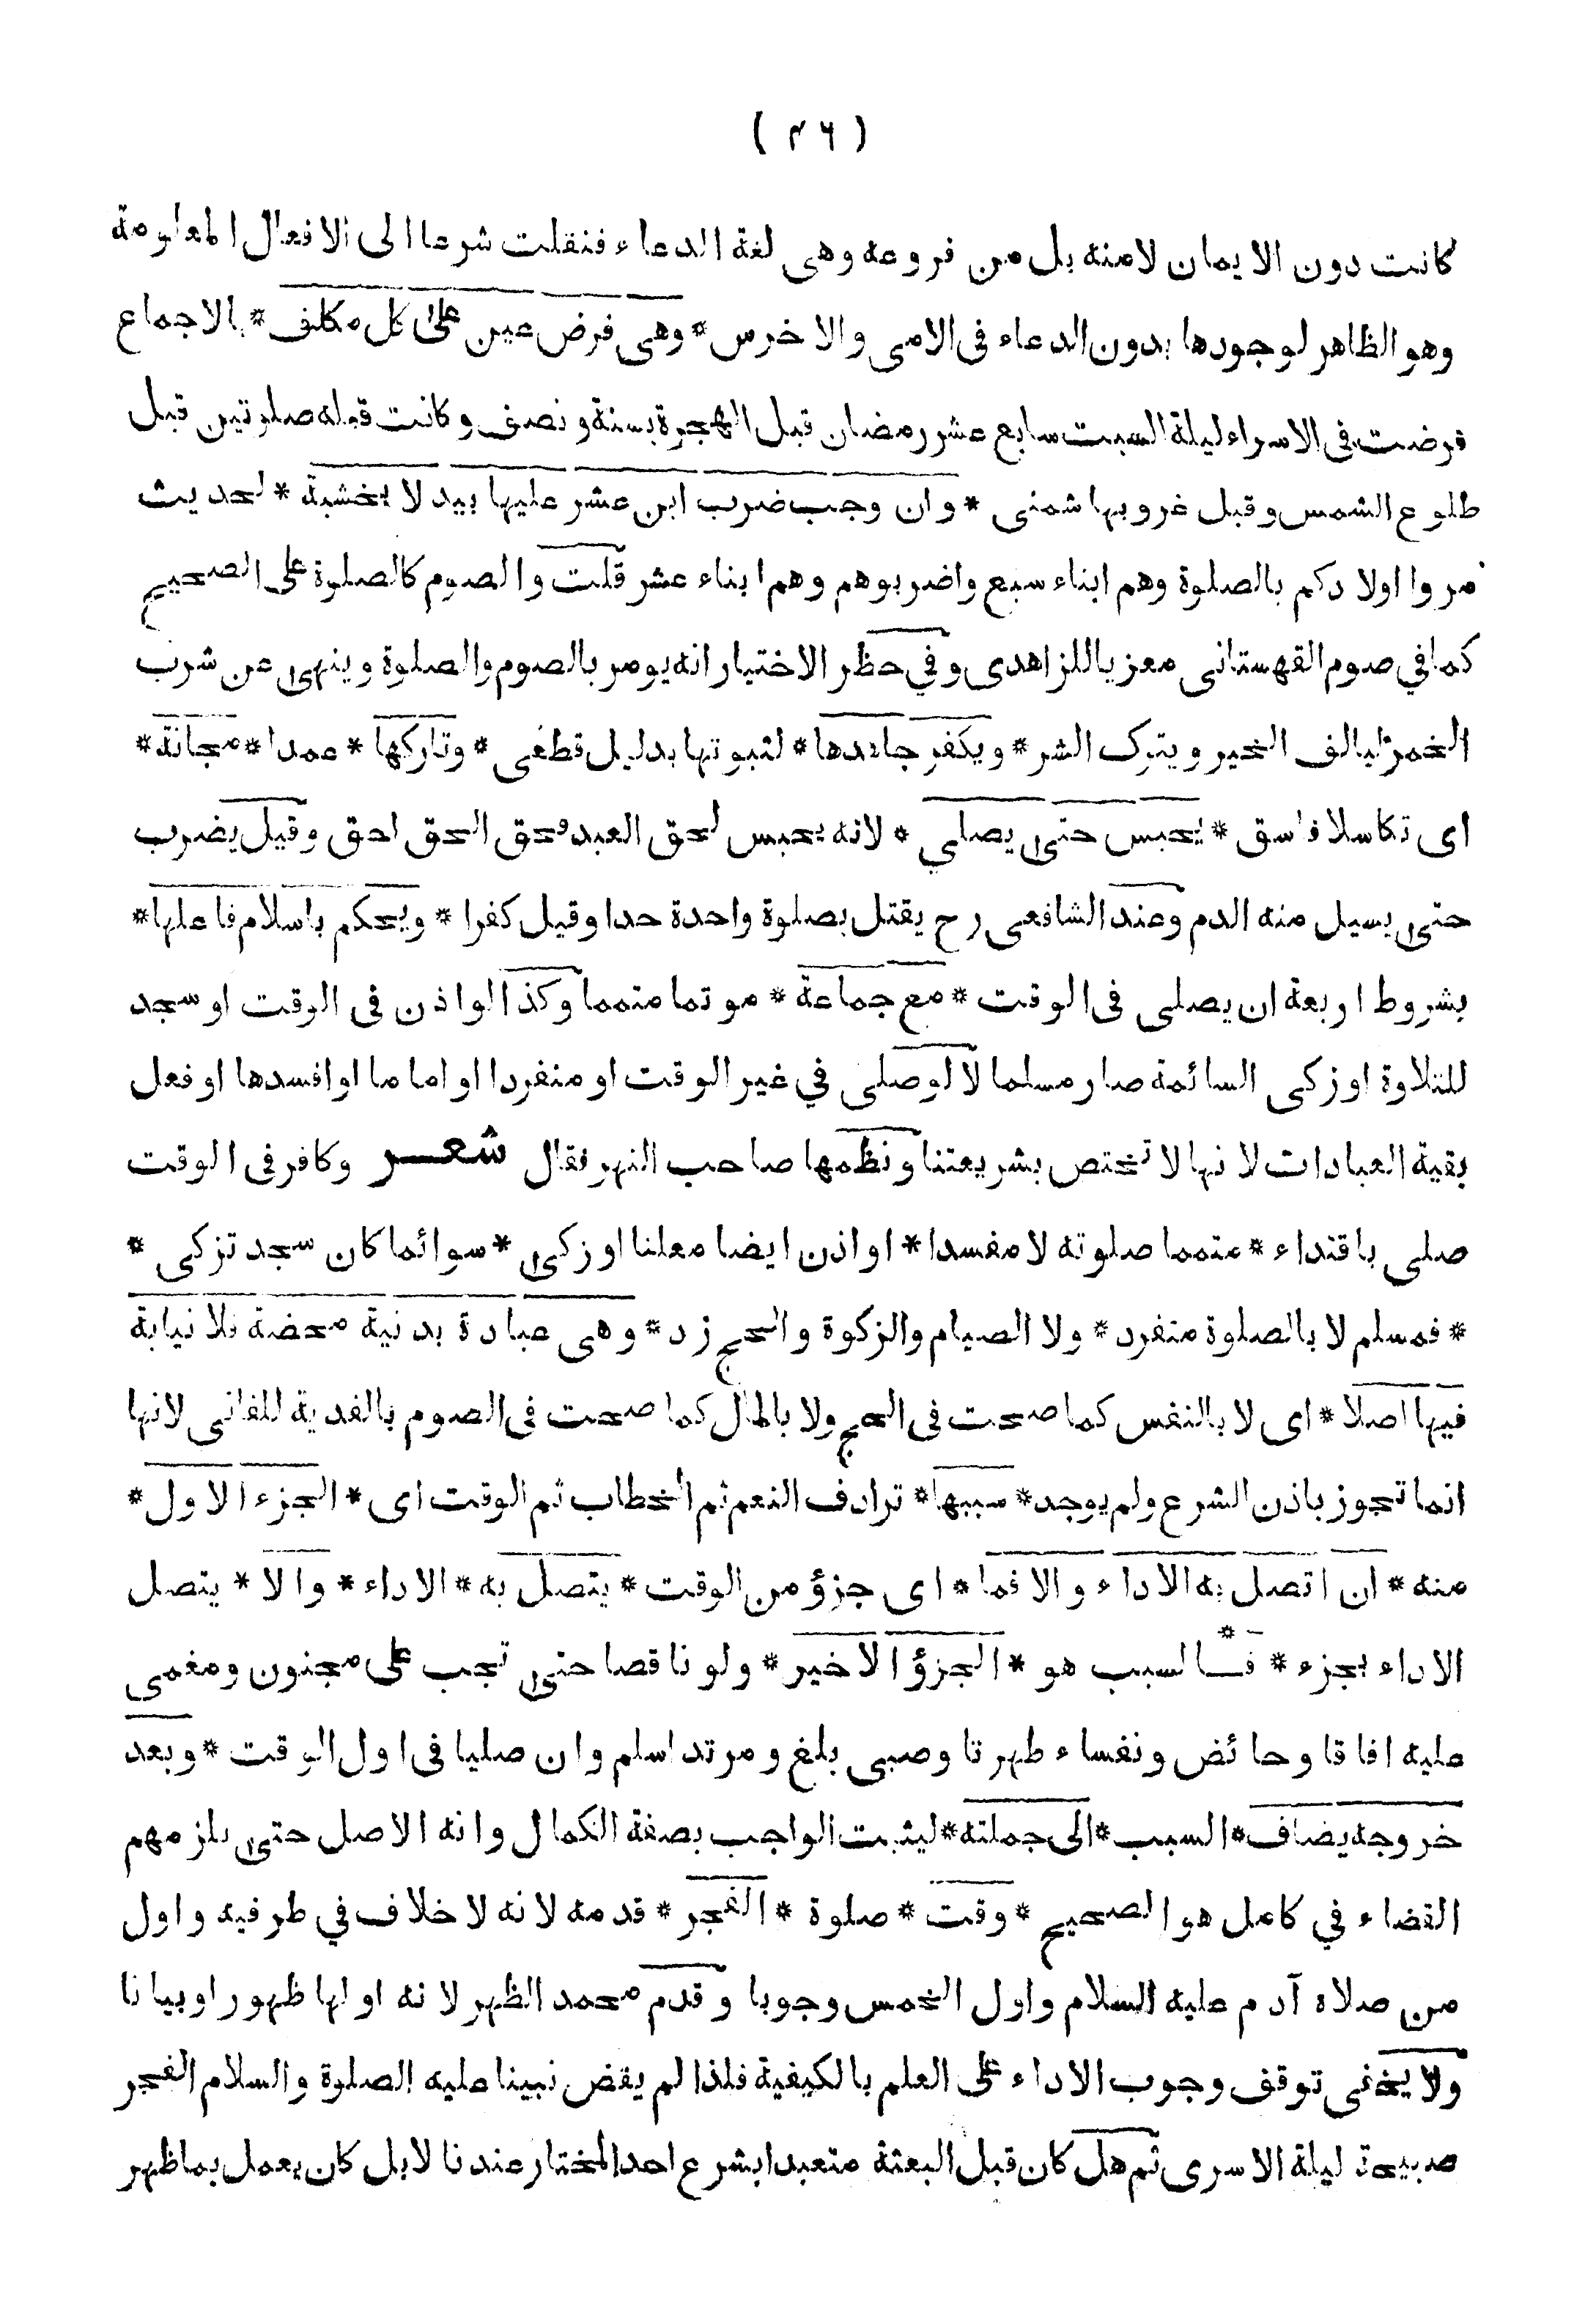 ( ٤٦ )
كانت دون الايمان لامنه بل من فروعه وهى لغة الدعاء فنقلت شرعا الى الافعال المعلومة
وهو الظاهر لوجودها بدون الدعاء فى الامى والاخرس * وهى فرض عين على كل مكلف * بالاجماع
فرضت فى الاسراء ليلة السبت سابع عشر رمضان قبل الهجرة بسنة ونصف وكانت قبله صلوتين قبل
طلوع الشمس وقبل غروبها شمنى * وان وجب ضرب ابن عشر عليها بيد لا بخشبة * لحديث
مروا اولادكم بالصلوة وهم ابناء سبع واضربوهم وهم ابناء عشر قلت والصوم كالصلوة على الصحيح
كما في صوم القهستانى معزيا للزاهدى وفي حظر الاختيار انه يومر بالصوم والصلوة وينهى عن شرب
الخمر ليالف الخير ويترك الشر * ويكفر جاحدها * لثبوتها بدليل قطعى * وتاركها * عمدا * مجانة *
اى تكاسلا فاسق * يحبس حتى يصلي * لانه يحبس لحق العبد فحق الحق احق وقيل يضرب
حتى يسيل منه الدم وعند الشافعى رح يقتل بصلوة واحدة حدا وقيل كفرا * ويحكم باسلام فاعلها *
بشروط اربعة ان يصلى فى الوقت * مع جماعة * موتما متمما وكذا لو اذن فى الوقت او سجد
للتلاوة او زكى السائمة صار مسلما لا لو صلى في غير الوقت او منفردا او اماما او افسدها او فعل
بقية العبادات لانها لا تختص بشريعتنا ونظمها صاحب النهر فقال شعر وكافر فى الوقت
صلى باقتداء * متمما صلوته لا مفسدا * او اذن ايضا معلنا او زكى * سوائما كان سجد تزكى *
* فمسلم لا بالصلوة منفرد * ولا الصيام والزكوة والحج زد * وهى عبادة بدنية محضة فلا نيابة
فيها اصلا * اى لا بالنفس كما صحت فى الحج ولا بالمال كما صحت فى الصوم بالفدية للفانى لانها
انما تجوز باذن الشرع ولم يوجد * سببها * ترادف النعم ثم الخطاب ثم الوقت اى * الجزء الاول *
منه * ان اتصل به الاداء والا فما * اى جزؤ من الوقت * يتصل به * الاداء * والا * يتصل
الاداء بجزء * فـ * ـالسبب هو * الجزؤ الاخير * ولو ناقصا حتى تجب على مجنون ومغمى
عليه افاقا وحائض ونفساء طهرتا وصبى بلغ ومرتد اسلم وان صليا فى اول الوقت * وبعد
خروجه يضاف * السبب * الى جملته * ليثبت الواجب بصفة الكمال وانه الاصل حتى يلزمهم
القضاء في كامل هو الصحيح * وقت * صلوة * الفجر * قدمه لانه لا خلاف في طرفيه واول
من صلاه آدم عليه السلام واول الخمس وجوبا وقدم محمد الظهر لانه اولها ظهورا وبيانا
ولا يخفى توقف وجوب الاداء على العلم بالكيفية فلذا لم يقض نبينا عليه الصلوة والسلام الفجر
صبيحة ليلة الاسرى ثم هل كان قبل البعثة متعبدا بشرع احد المختار عندنا لا بل كان يعمل بما ظهر